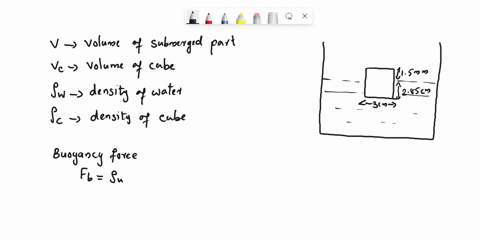 V → volume of submerged part
Vc → volume of cube
ρw → density of water
ρc → density of cube
Buoyancy force
Fb = ρw
1.5mm
2.85cm
3cm